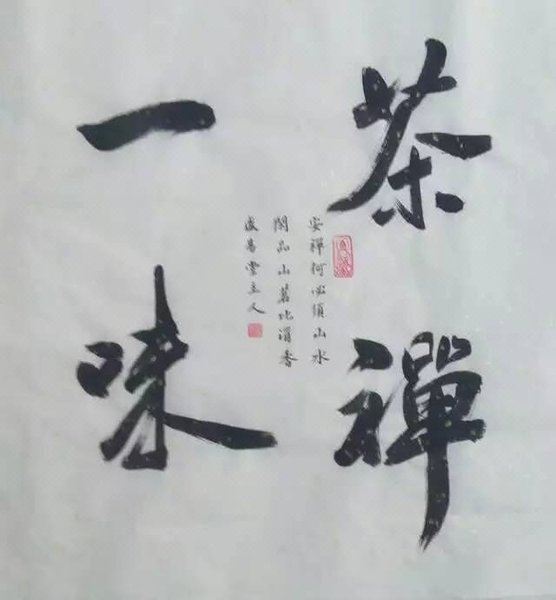 茶禪
一味
安禪何必須山水
品山茗比香
堂主人